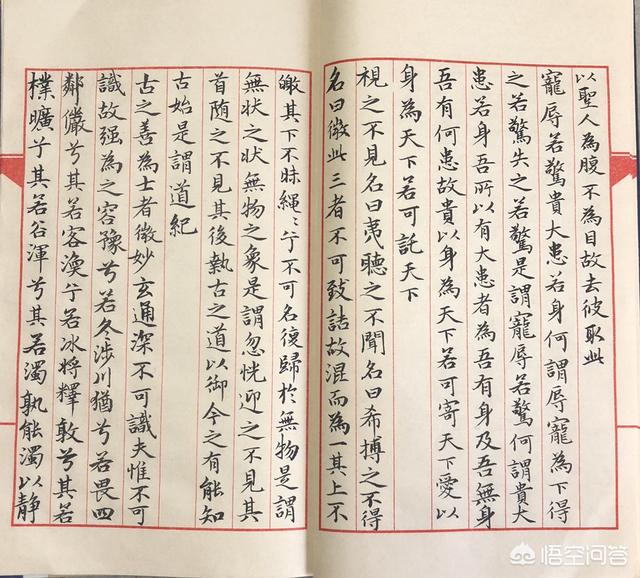 以聖人為腹不為目故去彼取此
寵辱若驚貴大患若身何謂辱寵為下得
之若驚失之若驚是謂寵辱若驚何謂貴大
患若身吾所以有大患者為吾有身及吾無身
吾有何患故貴以身為天下若可寄天下愛以
身為天下若可託天下
視之不見名曰夷聽之不聞名曰希搏之不得
名曰微此三者不可致詰故混而為一其上不
皦其下不昧繩〻兮不可名復歸於無物是謂
無狀之狀無物之象是謂忽恍迎之不見其
首随之不見其後執古之道以御今之有能知
古始是謂道紀
古之善為士者微妙玄通深不可識夫惟不可
識故强為之容豫兮若冬涉川猶兮若畏四
鄰儼兮其若客渙兮若冰將釋敦兮其若
樸曠兮其若谷渾兮其若濁孰能濁以靜
悟空问答